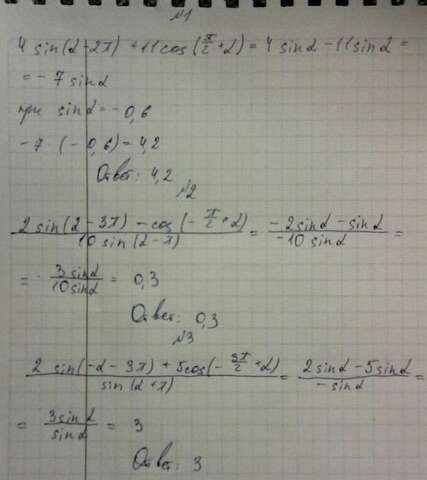 №1
4 sin(α-2π) + 11 cos(π/2 + α) = 4 sinα - 11 sinα =
= - 7 sinα
при sinα = - 0,6
- 7 · (- 0,6) = 4,2
Ответ: 4,2
№2
(2 sin(α - 3π) - cos(- π/2 + α)) / (10 sin(α - π)) = (-2 sinα - sinα) / (-10 sinα) =
= 3 sinα / 10 sinα = 0,3
Ответ: 0,3
№3
(2 sin(-α - 3π) + 5cos(- 3π/2 + α)) / (sin(α + π)) = (2 sinα - 5 sinα) / (- sinα) =
= 3 sinα / sinα = 3
Ответ: 3